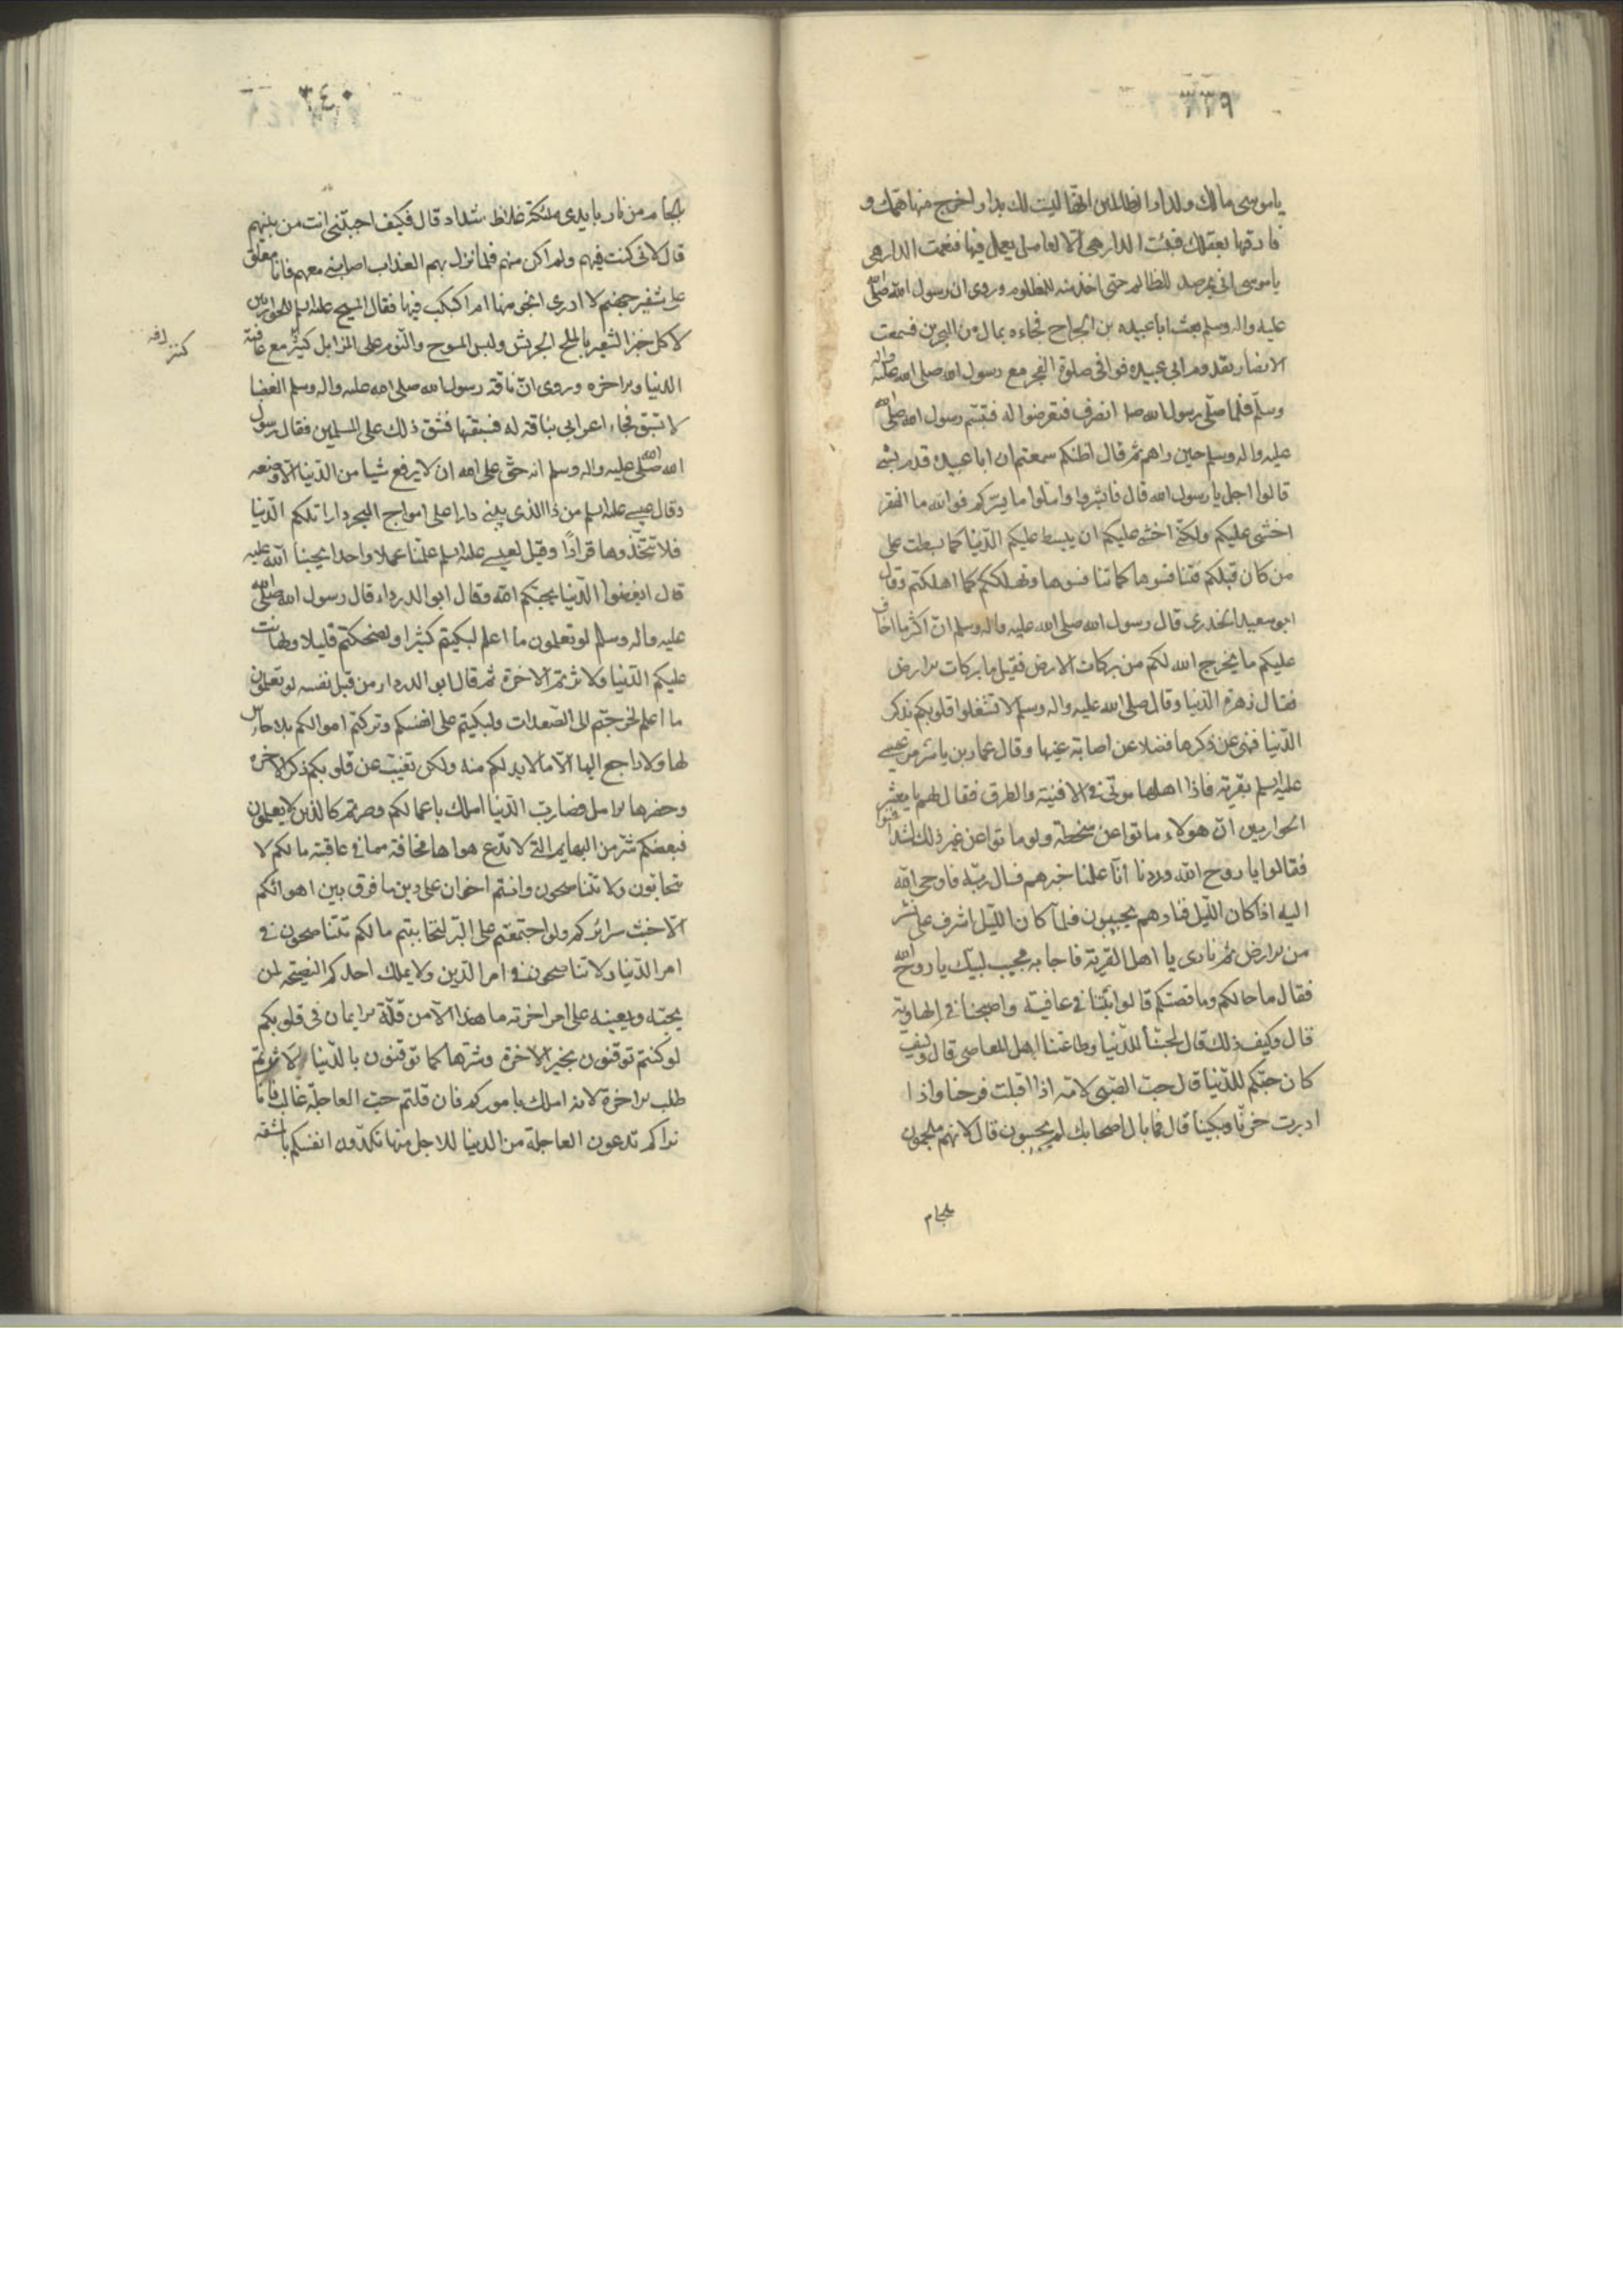 ٣٣٩
يا موسى مالك ولدار الظالمين انها ليست لك بدار اخرج منها همك و
فارقها بعقلك فبئت الدار هى الا لعامل يعمل فيها فنعمت الدار هى
يا موسى انى مرصد للظالم حتى اخذ منه للمظلوم وروى ان رسول الله صلى الله
عليه واله وسلم بعث ابا عبيده بن الجراح فجاءه بمال من البحرين فسمعت
الانصار بقدوم ابى عبيده فوافى صلوة الفجر مع رسول الله صلى الله عليه واله
وسلم فلما صلى رسول الله صلى انصرف فتعرضوا له فتبسم رسول الله صلى الله
عليه واله وسلم حين راهم ثم قال اظنكم سمعتم ان ابا عبيدة قدم بشى
قالوا اجل يا رسول الله قال فابشروا واملوا ما يسركم فوالله ما الفقر
اخشى عليكم ولكنى اخشى عليكم ان يبسط عليكم الدنيا كما بسطت على
من كان قبلكم فتنافسوها كما تنافسوها وتهلككم كما اهلكتهم وقال
ابو سعيد الخدرى قال رسول الله صلى الله عليه واله وسلم ان اكثر ما اخاف
عليكم ما يخرج الله لكم من بركات الارض فقيل ما بركات الارض
فقال زهرة الدنيا وقال صلى الله عليه واله وسلم لا تشغلوا قلوبكم بذكر
الدنيا فنهى عن ذكرها فضلا عن اصابة عينها وقال عمار بن ياسر مر عيسى
عليه السلم بقرية فاذا اهلها موتى فى الافنية والطرق فقال لهم يا معشر
الحواريين ان هولاء ماتوا عن سخطة ولو ماتوا عن غير ذلك لتدافنوا
فقالوا يا روح الله وددنا انا علمنا خبرهم فسال ربه فاوحى الله
اليه اذا كان الليل فنادهم يجيبون فلما كان الليل اشرف على نشز
من الارض ثم نادى يا اهل القرية فاجابه مجيب لبيك يا روح الله
فقال ما حالكم وما قصتكم قالوا بتنا فى عافية واصبحنا فى الهاوية
قال وكيف ذلك قال لحبنا للدنيا وطاعتنا اهل المعاصى قال وكيف
كان حبكم للدنيا قال حب الصبى لامه اذا اقبلت فرحنا واذا
ادبرت حزنا وبكينا قال فما بال اصحابك لم يجيبون قال لانهم ملجمون
بلجام
٣٤٠
بلجام من نار بايدى ملئكة غلاظ شداد قال فكيف اجبتنى انت من بينهم
قال لانى كنت فيهم ولم اكن منهم فلما نزل بهم العذاب اصابنى معهم فانا معلق
على شفير جهنم لا ادرى انجو منها ام اكبكب فيها فقال المسيح عليه السلم للحواريين
لاكل خبز الشعير بالملح الجريش ولبس المسوح والنوم على المزابل كثير مع عافية
الدنيا والاخره وروى ان ناقة رسول الله صلى الله عليه واله وسلم العضبا
لا تسبق فجاء اعرابى بناقة له فسبقها فشق ذلك على المسلمين فقال رسول
الله صلى الله عليه واله وسلم انه حق على الله ان لا يرفع شيا من الدنيا الا وضعه
وقال عيسى عليه السلم من ذا الذى يبنى دارا على امواج البحر دارا تلكم الدنيا
فلا تتخذوها قرارًا وقيل لعيسى عليه السلم علمنا عملا واحدا يحبنا الله عليه
قال ابغضوا الدنيا يحبكم الله وقال ابو الدرداء قال رسول الله صلى الله
عليه واله وسلم لو تعلمون ما اعلم لبكيتم كثيرا ولضحكتم قليلا ولهانت
عليكم الدنيا ولاثرتم الاخرة ثم قال ابو الدرداء من قبل نفسه لو تعلمون
ما اعلم لخرجتم الى الصعدات ولبكيتم على انفسكم وتركتم اموالكم بلا حارس
لها ولا راجع اليها الا ما لا بد لكم منه ولكن تغيب عن قلوبكم ذكر الاخره
وحضرها الامل فصارت الدنيا املك باعمالكم وصرتم كالذين لا يعلمون
فبعضكم شر من البهايم التى لا تدع هواها مخافة مما فى عاقبته مالكم لا
تحابون ولا تناصحون وانتم اخوان على دين ما فرق بين اهوائكم
الا خبث سرائركم ولو اجتمعتم على البر لتحاببتم مالكم تتناصحون فى
امر الدنيا ولا تناصحون فى امر الدين ولا يملك احدكم النصيحة لمن
يحبه ويعينه على امر اخرته ما هذا الا من قلة الايمان فى قلوبكم
لو كنتم توقنون بخير الاخرة وشرها كما توقنون بالدنيا لاثرتم
طلب الاخرة لانه املك باموركم فان قلتم حب العاجلة غالب فانا
نراكم تدعون العاجلة من الدنيا للاجل منها تكدون انفسكم بالمشقه